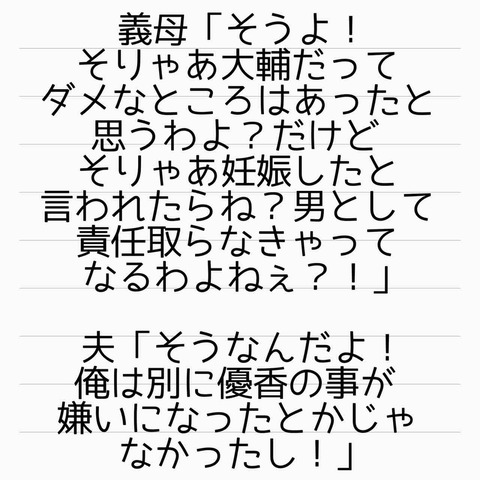 義母「そうよ！
そりゃあ大輔だって
ダメなところはあったと
思うわよ？だけど
そりゃあ妊娠したと
言われたらね？男として
責任取らなきゃって
なるわよねぇ？！」
夫「そうなんだよ！
俺は別に優香の事が
嫌いになったとかじゃ
なかったし！」